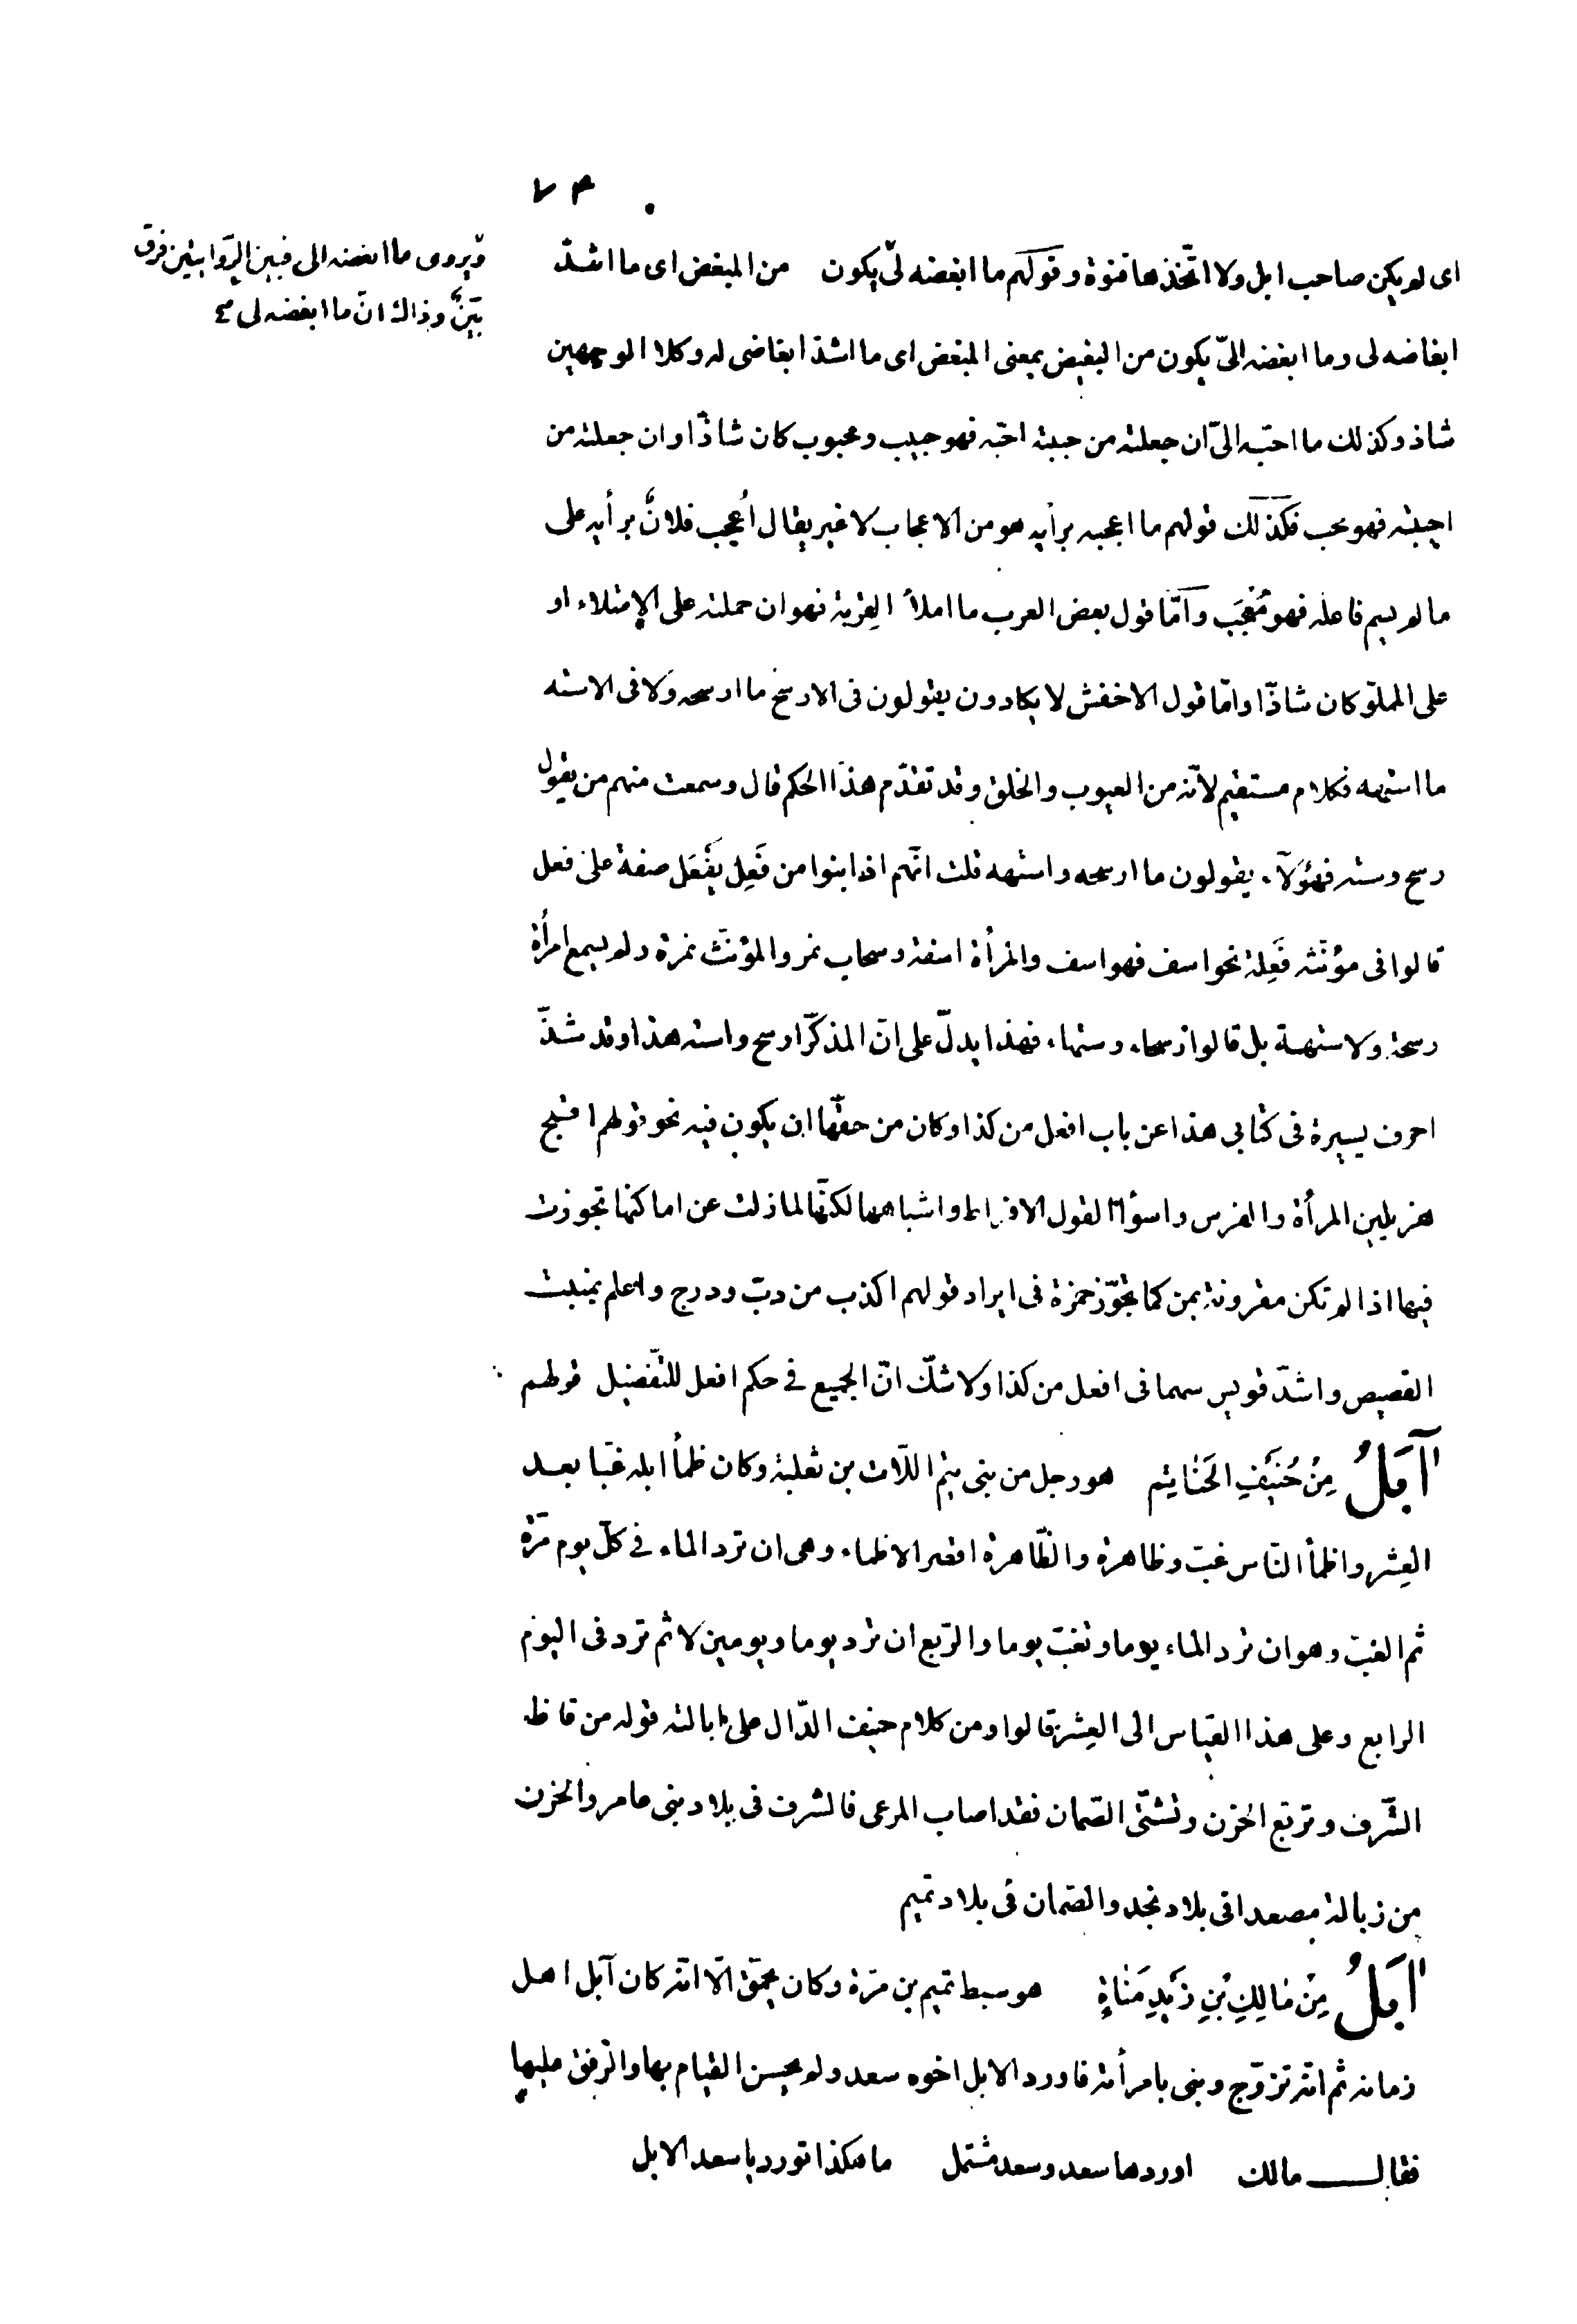 ٧٣
اى لم يكن صاحب ابل ولا اتّخذها قنوة وقولهم ما ابغضه لىّ يكون من المبغض اى ما اشدّ
ويروى ما ابغضه الى فبين الرّوايتين فرق
بَيِّنٌ وذاك انّ ما ابغضه لى
ابغاضه لى وما ابغضه الىّ يكون من البغيض بمعنى المبغض اى ما اشدّ ابغاضى له وكلا الوجهين
شاذ وكذلك ما احبّه الىّ ان جعلته من حببته احبّه فهو حبيب ومحبوب كان شاذّا وان جعلته من
احببته فهو محب فكذلك قولهم ما اعجبه برأيه هو من الاعجاب لا غير يقال اُعجب فلانٌ برأيه على
ما لم يسم فاعله فهو مُعْجَب وامّا قول بعض العرب ما املأ القِربة فهو ان حملته على الإمتلاء او
على الملؤ كان شاذّا وامّا قول الاخفش لا يكادون يقولون فى الارسح ما ارسحه ولا فى الاسته
ما استهه فكلام مستقيم لانّه من العيوب والخلق وقد تقدّم هذا الحكم قال وسمعت منهم من يقول
رسح وسته فهؤلآء يقولون ما ارسحه واستهه قلت انّهم اذا بنوا من فَعِل يَفْعَل صفة على فعل
قالوا فى مؤنّثه فَعِلة نحو اسف فهو اسف والمرأة اسفة وسحاب نمر والمؤنّث نمرة ولم يسمع امرأة
رسحة ولا ستهة بل قالوا رسحاء وستهاء فهذا يدلّ على انّ المذكّر ارسح واسته هذا وقد شذّ
احرف يسيرة فى كتابى هذا عن باب افعل من كذا وكان من حقّها ان يكون فيه نحو قولهم اقبح
هزيلين المرأة والفرس واسوأ القول الافراط واشباهها لكنّها لما زلت عن اماكنها تجوزت
فيها اذا لم تكن مقرونة بمن كما تجوّز حمزة فى ايراد قولهم اكذب من دبّ ودرج واعلم بمنبت
القصيص واشدّ قويس سهما فى افعل من كذا ولا شكّ انّ الجميع فى حكم افعل للتّفضيل قولهم
آبَلُ مِنْ حُنَيْفِ الحَنٰاتِم هو رجل من بنى تيم اللّات بن ثعلبة وكان ظمأ ابله غبّا بعد
العِشر واظمأ النّاس غبّ وظاهرة والظّاهرة اقصر الاظماء وهى ان ترد الماء فى كلّ يوم مرّة
ثم الغبّ وهو ان ترد الماء يوما وتغبّ يوما والرّبع ان ترد يوما ويومين لا ثم ترد فى اليوم
الرابع وعلى هذا القياس الى العِشر قالوا ومن كلام حنيف الدّال على ابالته قوله من قاظ
الشّرف وتربّع الحزن وتشتّى الصّمان فقد اصاب المرعى فالشرف فى بلاد بنى عامر والحزن
من زبالة مصعدا فى بلاد نجد والصّمان فى بلاد تميم
آبَلُ مِنْ مٰالِكِ بْنِ زَيْدِ مَنٰاةٍ هو سبط تميم بن مرّة وكان يحمّق الّا انّه كان آبل اهل
زمانه ثم انّه تزوّج وبنى بامرأته فاورد الابل اخوه سعد ولم يحسن القيام بها والرّفق عليها
فقال مالك اوردها سعد وسعد مشتمل ما هكذا تورد يا سعد الابل